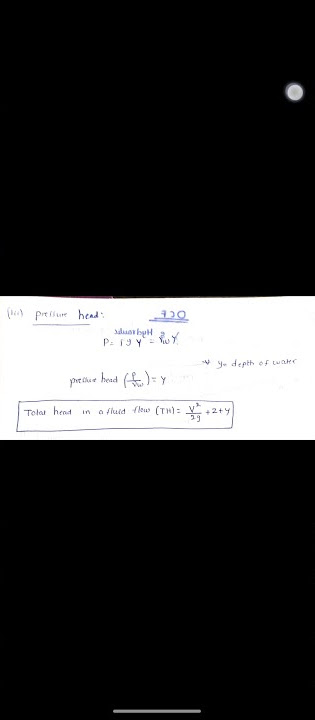 (iii) pressure head:
P = ρ g y = γw y
y = depth of water
pressure head (P/γw) = y
Total head in a fluid flow (TH) = V²/2g + z + y